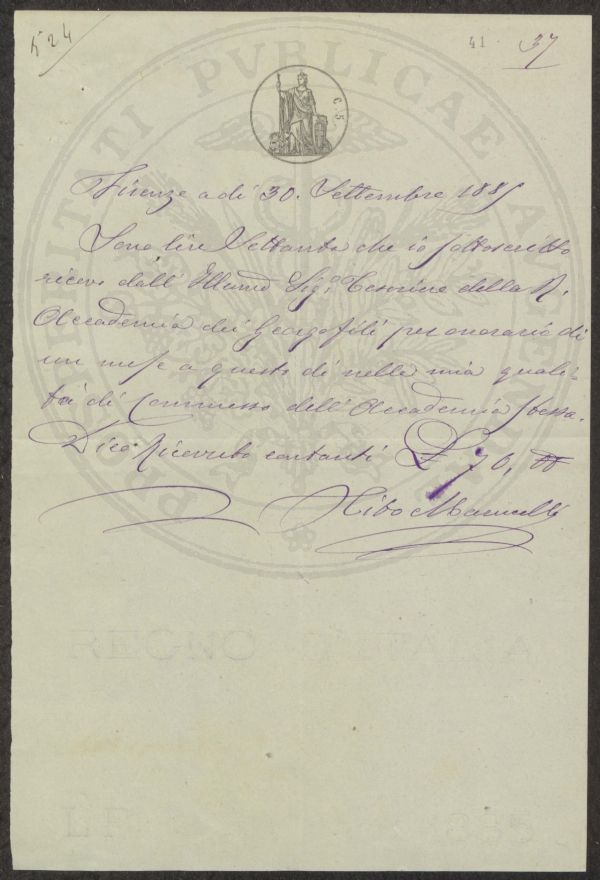 524
41 37
PROSPERITATI PVBLICAE AVGENDAE
C. 5.
Firenze a dì 30. Settembre 1885
Sono lire Settanta che io sottoscritto
ricevo dall' Illumo Sigr Tesoriere della R.
Accademia dei Georgofili per onorario di
un mese a questo dì nella mia quali-
tà di Commesso dell' Accademia stessa.
Dico Ricevuto contanti £ 70, 00
REGNO D'ITALIA
LF 885